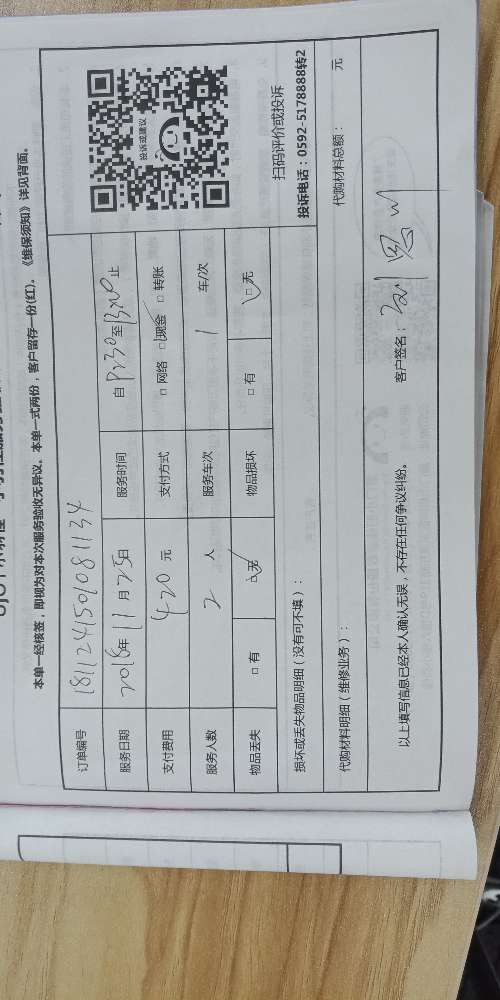 本单一经核签，即视为对本次服务验收无异议。本单一式两份，客户留存一份(红)。《维保须知》详见背面。
订单编号 181124150108 1134
服务日期 2018年 11 月 25日 服务时间 自 至 止
支付费用 420 元 支付方式 □ 网络 □ 现金 □ 转账
服务人数 2 人 服务车次 1 车/次
物品丢失 □ 有 □ 无 物品损坏 □ 有 □ 无
投诉或建议
扫码评价或投诉
投诉电话：0592-5178888转2
损坏或丢失物品明细（没有可不填）：
代购材料明细（维修业务）： 代购材料总额： 元
以上填写信息已经本人确认无误，不存在任何争议纠纷。 客户签名：